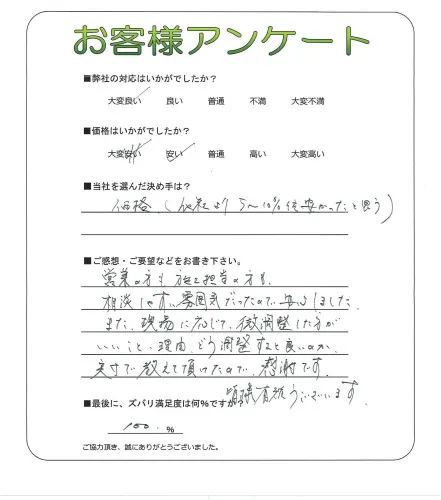 お客様アンケート
■弊社の対応はいかがでしたか？
大変良い 良い 普通 不満 大変不満
■価格はいかがでしたか？
大変安い 安い 普通 高い 大変高い
■当社を選んだ決め手は？
価格（他社より5〜10%位安かったと思う）
■ご感想・ご要望などをお書き下さい。
営業の方も施工担当の方も、
相談しやすい雰囲気だったので安心しました。
また、現場に応じて、微調整した方が
いいこと・理由、どう調整すると良いのか、
実寸で教えて頂いたので、感謝です。
皆様有難うございます。
■最後に、ズバリ満足度は何%ですか？
100 %
ご協力頂き、誠にありがとうございました。